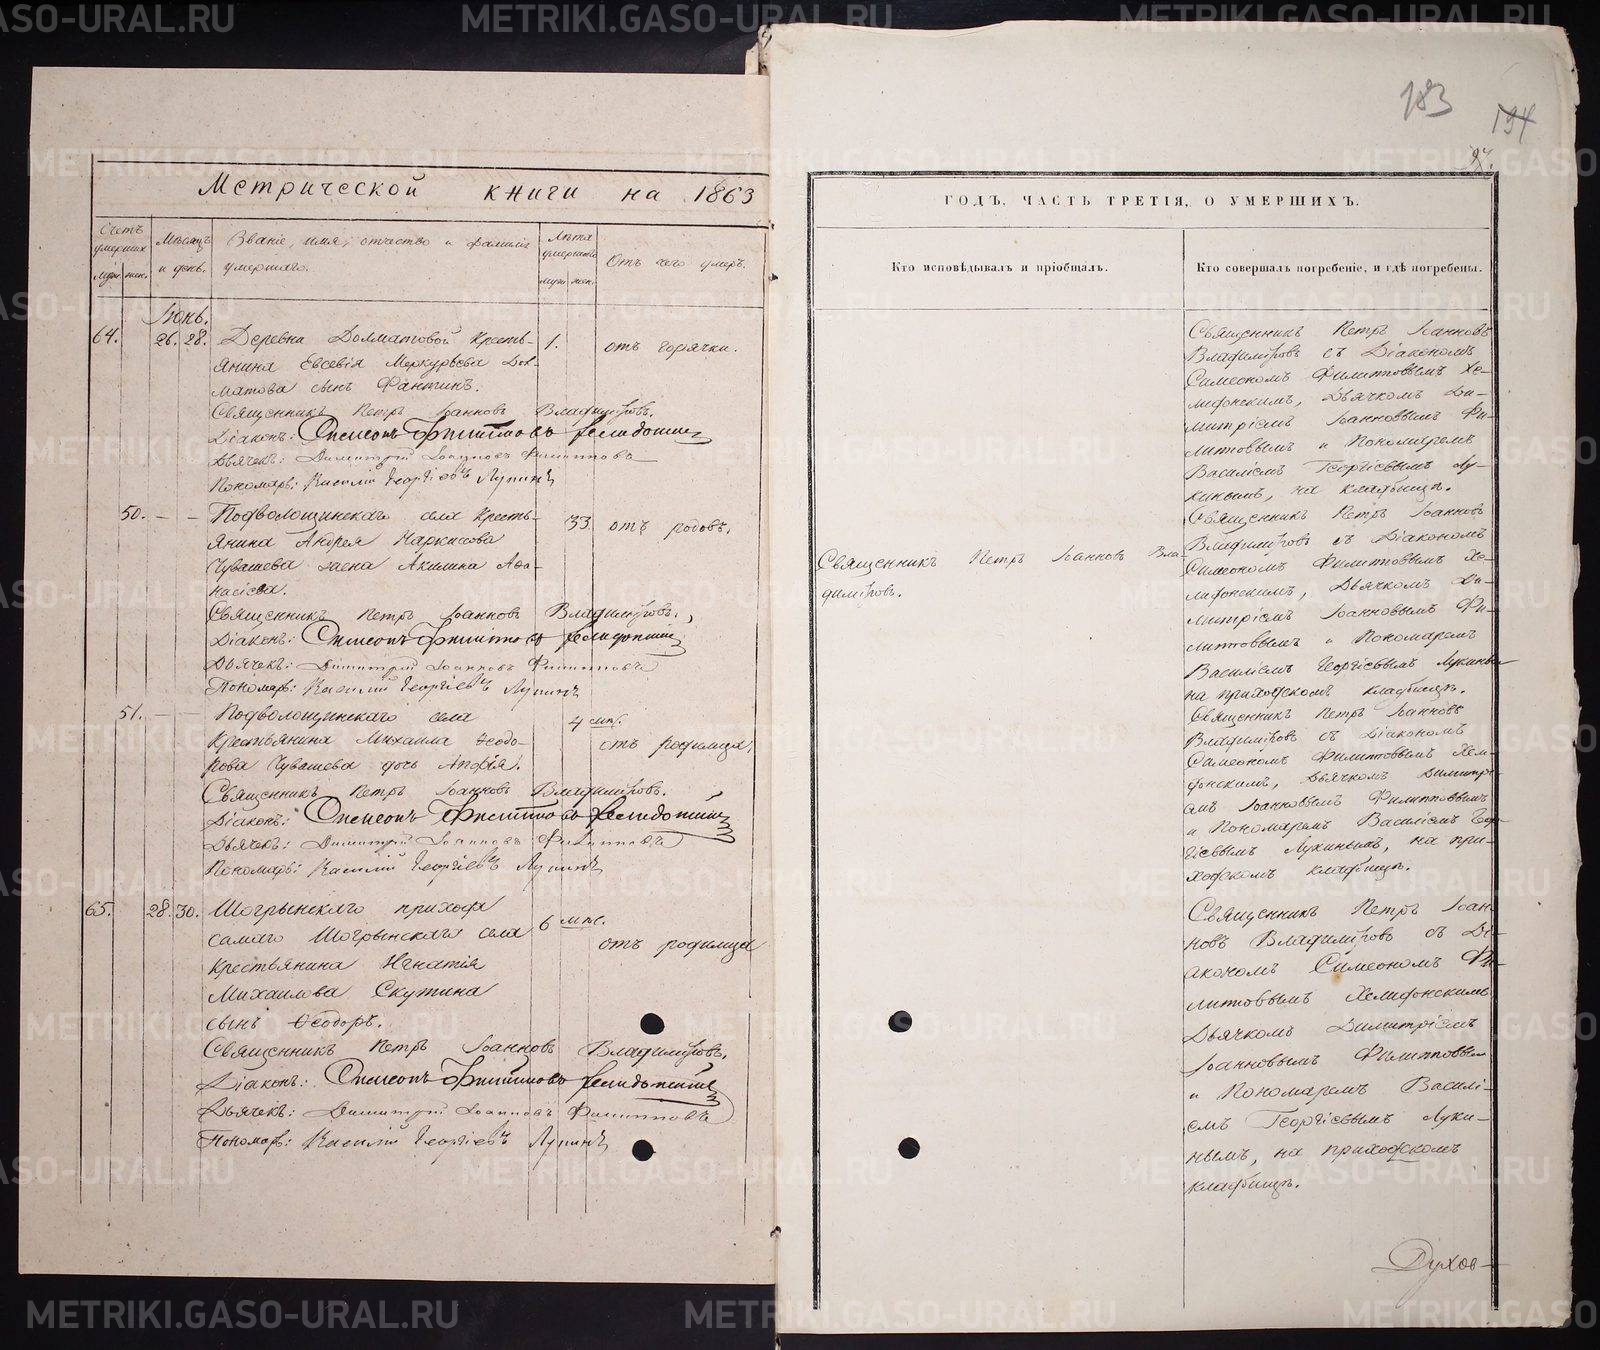 Метрической книги на 1863
Счетъ умершихъ
муж. жен.
Мѣсяцъ и день.
Званіе, имя, отчество и фамилія умершаго.
Лѣта умершаго
муж. жен.
Отъ чего умеръ.
Іюнь.
64. 26. 28. Деревни Долматовой кресть- 1. отъ горячки.
янина Евсевія Меркурьева Дол-
матова сынъ Фантинъ.
Священникъ Петръ Іоанновъ Владиміровъ.
Діаконъ: Симеонъ Филипповъ
Дьячекъ: Димитрій Іоанновъ Филипповъ
Пономарь: Василій Георгіевъ Лукинъ
50. — — Подволошинскаго села кресть- 33 отъ родовъ.
янина Андрея Наркисова
Чувашева жена Акилина Афа-
насіева.
Священникъ Петръ Іоанновъ Владиміровъ.
Діаконъ: Симеонъ Филипповъ
Дьячекъ: Димитрій Іоанновъ Филипповъ
Пономарь: Василій Георгіевъ Лукинъ
51. — — Подволошинскаго села 4 мѣс.
крестьянина Михаила Ѳеодо- отъ родимца.
рова Чувашева дочь Апфія.
Священникъ Петръ Іоанновъ Владиміровъ.
Діаконъ: Симеонъ Филипповъ
Дьячекъ: Димитрій Іоанновъ Филипповъ
Пономарь: Василій Георгіевъ Лукинъ
65. 28. 30. Шогрынскаго прихода
самаго Шогрынскаго села 6 мѣс. отъ родимца
крестьянина Игнатія
Михаилова Скутина
сынъ Ѳеодоръ.
Священникъ Петръ Іоанновъ Владиміровъ.
Діаконъ: Симеонъ Филипповъ
Дьячекъ: Димитрій Іоанновъ Филипповъ
Пономарь: Василій Георгіевъ Лукинъ
183
194
ГОДЪ, ЧАСТЬ ТРЕТІЯ, О УМЕРШИХЪ.
Кто исповѣдывалъ и пріобщалъ.
Кто совершалъ погребеніе, и гдѣ погребены.
Священникъ Петръ Іоанновъ Вла-
диміровъ.
Священникъ Петръ Іоанновъ
Владиміровъ съ Діакономъ
Симеономъ Филипповымъ Хе-
лифонскимъ, Дьячкомъ Ди-
митріемъ Іоанновымъ Фи-
липповымъ и Пономаремъ
Василіемъ Георгіевымъ Лу-
кинымъ, на кладбищѣ.
Священникъ Петръ Іоанновъ
Владиміровъ съ Діакономъ
Симеономъ Филипповымъ Хе-
лифонскимъ, Дьячкомъ Ди-
митріемъ Іоанновымъ Фи-
липповымъ и Пономаремъ
Василіемъ Георгіевымъ Лукинымъ
на приходскомъ кладбищѣ.
Священникъ Петръ Іоанновъ
Владиміровъ съ Діакономъ
Симеономъ Филипповымъ Хели-
фонскимъ, Дьячкомъ Димитрі-
емъ Іоанновымъ Филипповымъ
и Пономаремъ Василіемъ Геор-
гіевымъ Лукинымъ, на при-
ходскомъ кладбищѣ.
Священникъ Петръ Іоан-
новъ Владиміровъ съ Ді-
акономъ Симеономъ Фи-
липповымъ Хелифонскимъ
Дьячкомъ Димитріемъ
Іоанновымъ Филипповым
и Пономаремъ Василі-
емъ Георгіевымъ Луки-
нымъ, на приходскомъ
кладбищѣ.
Духов-
METRIKI.GASO-URAL.RU